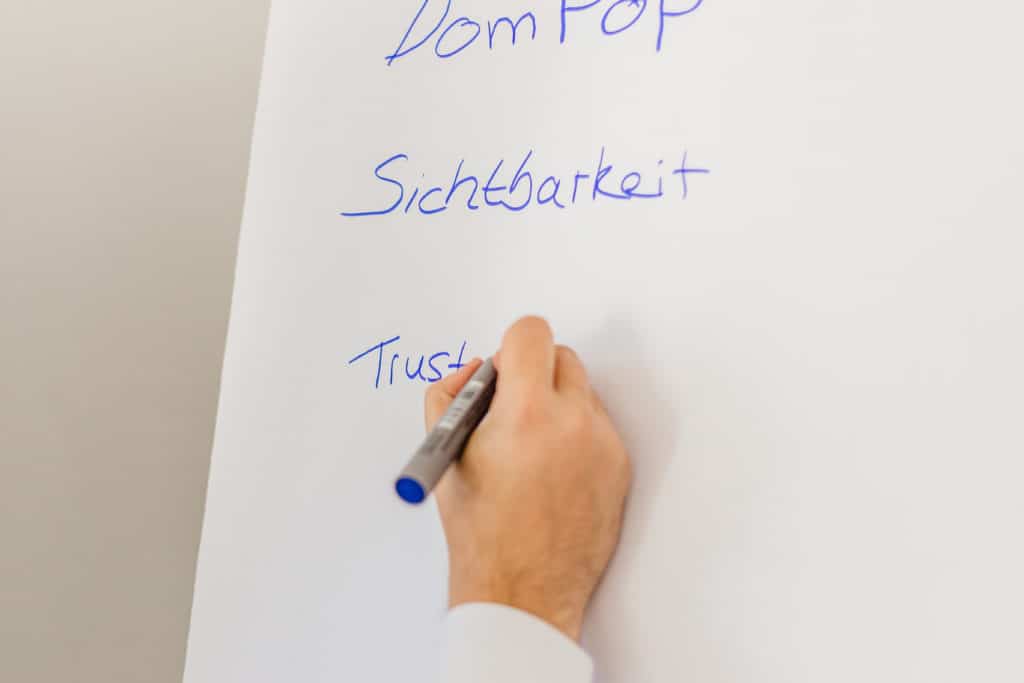 DomPop
Sichtbarkeit
Trust